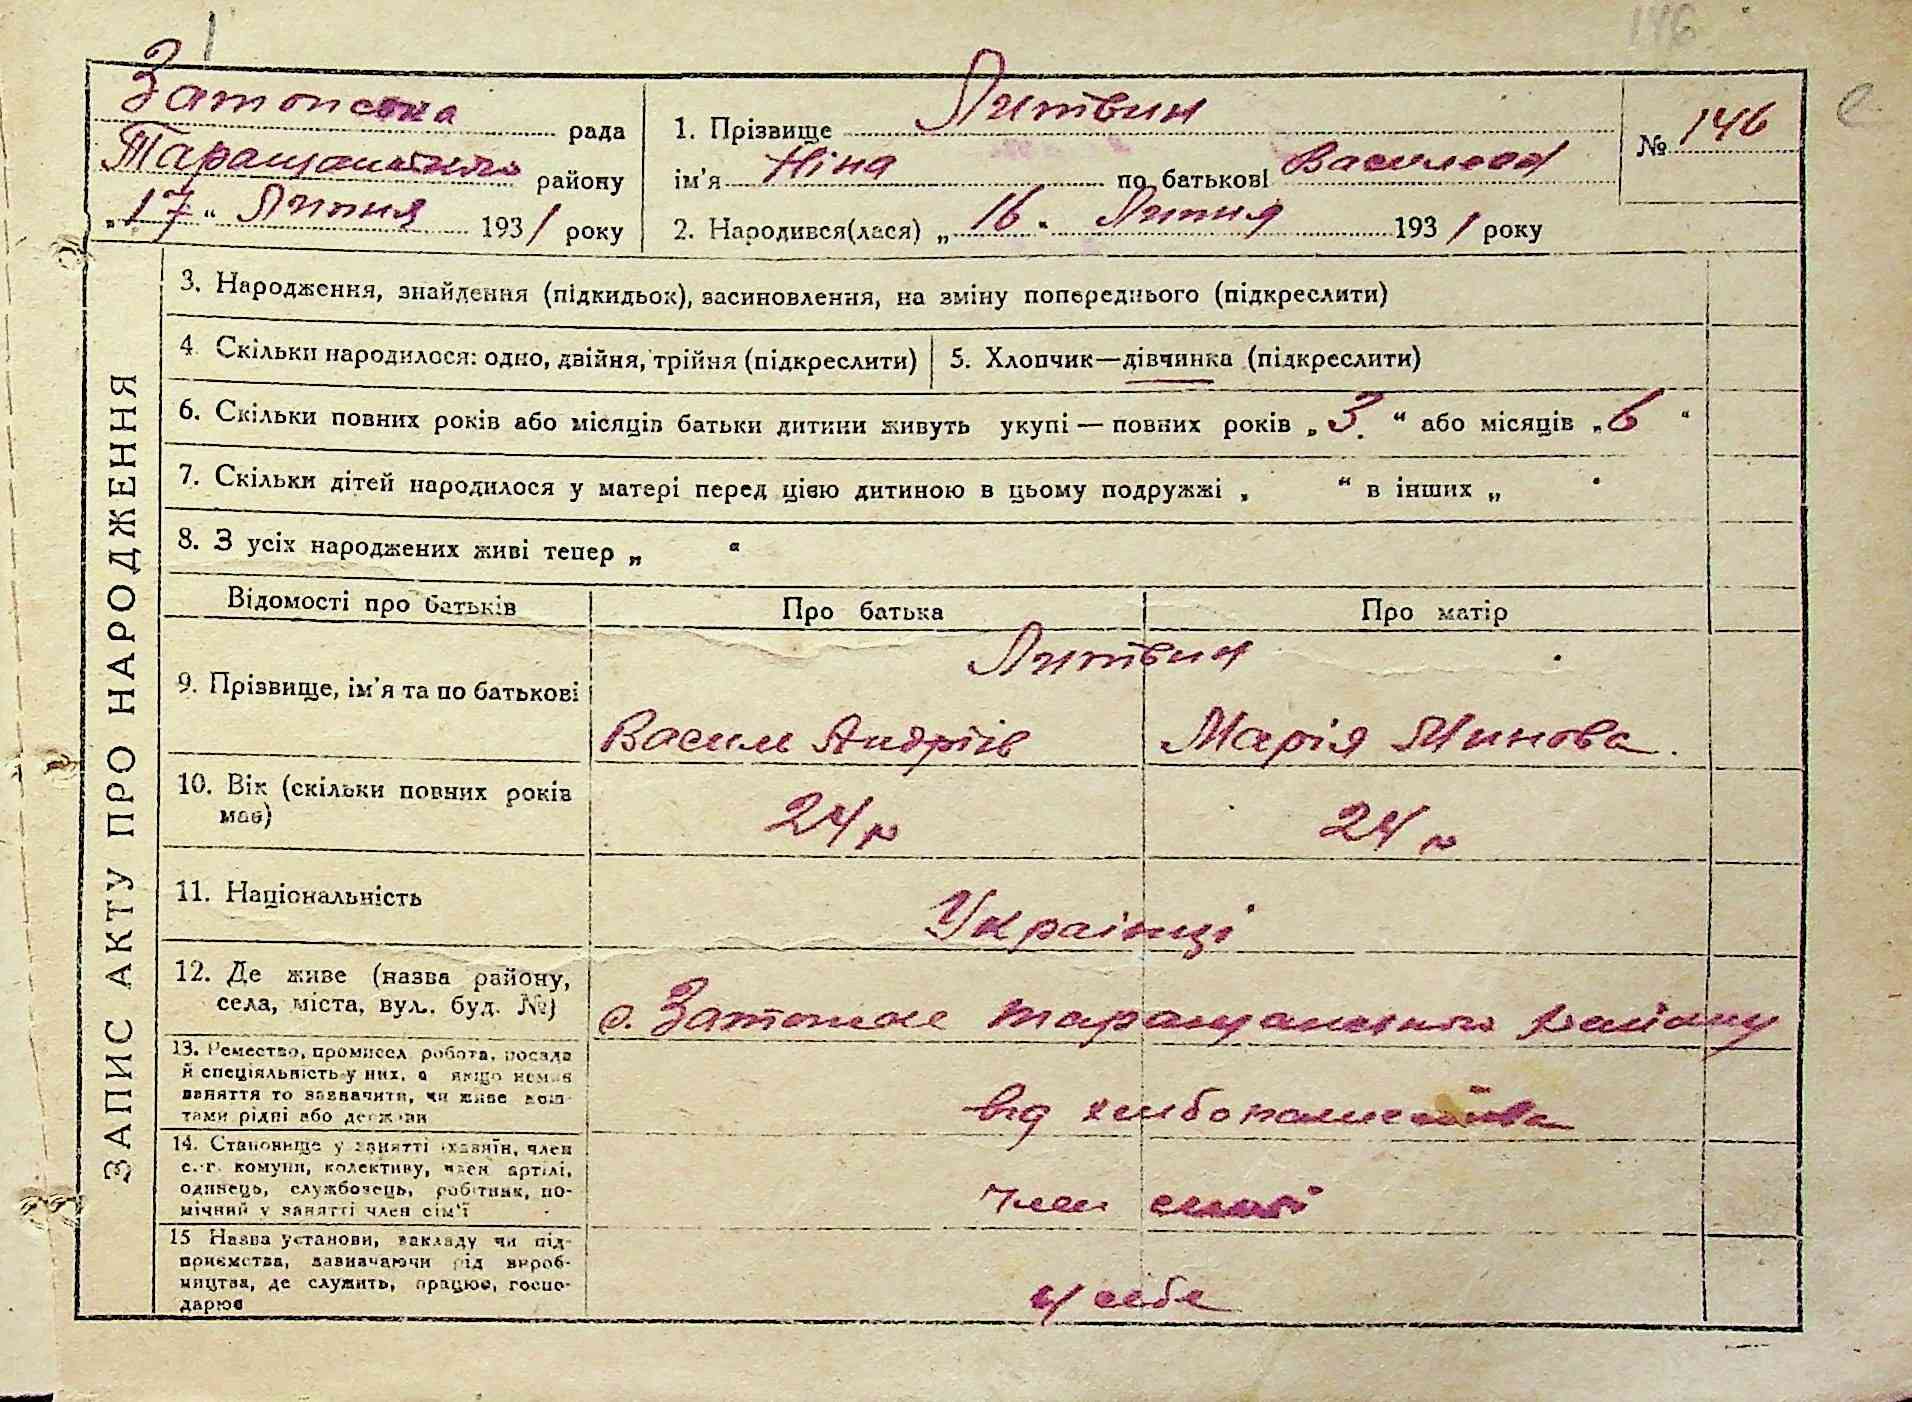 146
Затопська рада
Таращанського району
„17“ Липня 1931 року
1. Прізвище Литвин
ім'я Ніна по батькові
2. Народився(лася) „16“ Липня 1931 року
№ 146
ЗАПИС АКТУ ПРО НАРОДЖЕННЯ
3. Народження, знайдення (підкидьок), засиновлення, на зміну попереднього (підкреслити)
4. Скільки народилося: одно, двійня, трійня (підкреслити)
5. Хлопчик—дівчинка (підкреслити)
6. Скільки повних років або місяців батьки дитини живуть укупі — повних років „3.“ або місяців „6“
7. Скільки дітей народилося у матері перед цією дитиною в цьому подружжі „ “ в інших „ “
8. З усіх народжених живі тепер „ “
Відомості про батьків
Про батька
Про матір
9. Прізвище, ім'я та по батькові
Литвин
Василь Андріїв
Марія
10. Вік (скільки повних років
має)
24 р
24 р
11. Національність
Українці
12. Де живе (назва району,
села, міста, вул., буд. №)
с. Таращанського району
13. Ремество, промисел робота, посада
й спеціяльність у них, а якщо немає
заняття то зазначити, чи живе кош-
тами рідні або держави
від хлібопашества
14. Становище у занятті (хазяїн, член
с.-г. комуни, колективу, член артілі,
одинець, службовець, робітник, по-
мічний у занятті член сім'ї
член
15 Назва установи, закладу чи під-
приємства, зазначаючи рід вироб-
ництва, де служить, працює, госпо-
дарює
у себе